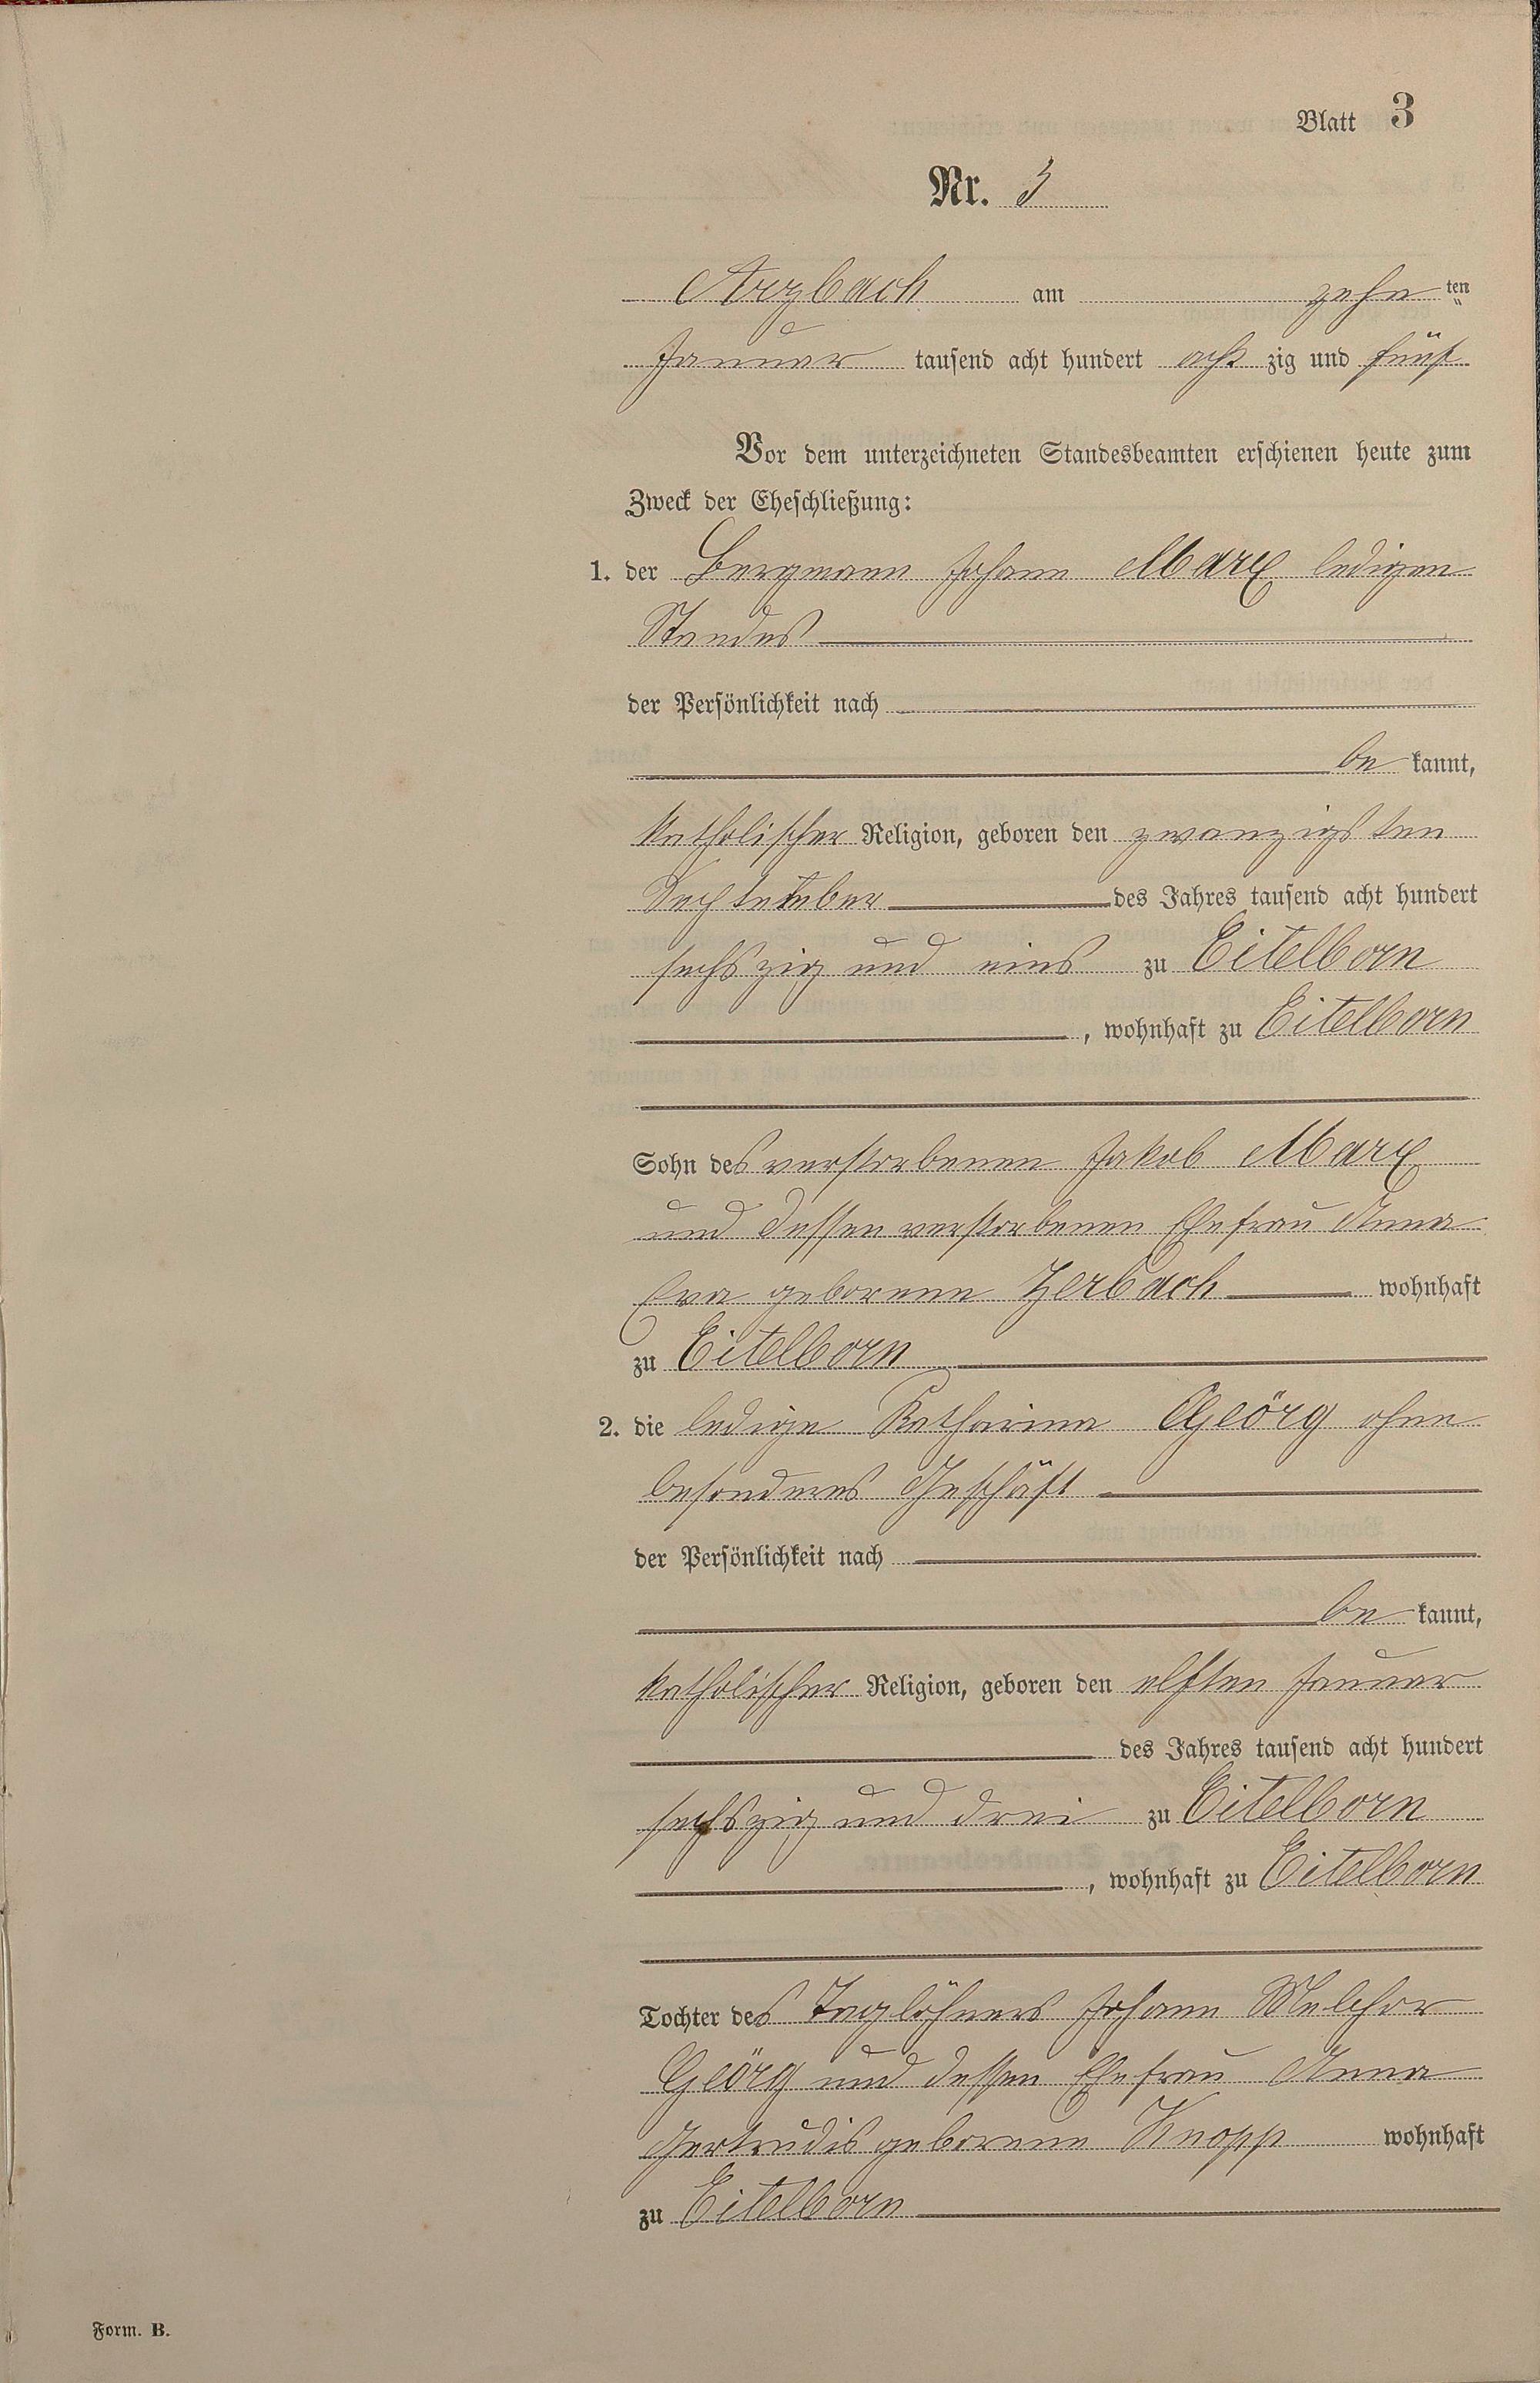 Blatt 3
Nr. 3
Arzbach am zehnten
Januar tausend acht hundert acht zig und fünf
Vor dem unterzeichneten Standesbeamten erschienen heute zum
Zweck der Eheschließung:
1. der Bergmann Johann Marx ledigen
Standes
der Persönlichkeit nach
be kannt,
katholischer Religion, geboren den zwanzigsten
September des Jahres tausend acht hundert
sechszig und eins zu Eitelborn
, wohnhaft zu Eitelborn
Sohn des verstorbenen Jakob Marx
und dessen verstorbenen Ehefrau Anna
Eva geborene Zerbach wohnhaft
zu Eitelborn
2. die ledige Katharina Georg ohne
besonderes Geschäft
der Persönlichkeit nach
be kannt,
katholischer Religion, geboren den elften Januar
des Jahres tausend acht hundert
sechszig und drei zu Eitelborn
, wohnhaft zu Eitelborn
Tochter des Taglöhners Johann Melchor
Geörg und dessen Ehefrau Anna
Gertrudis geborene Knopp wohnhaft
zu Eitelborn
Form. B.